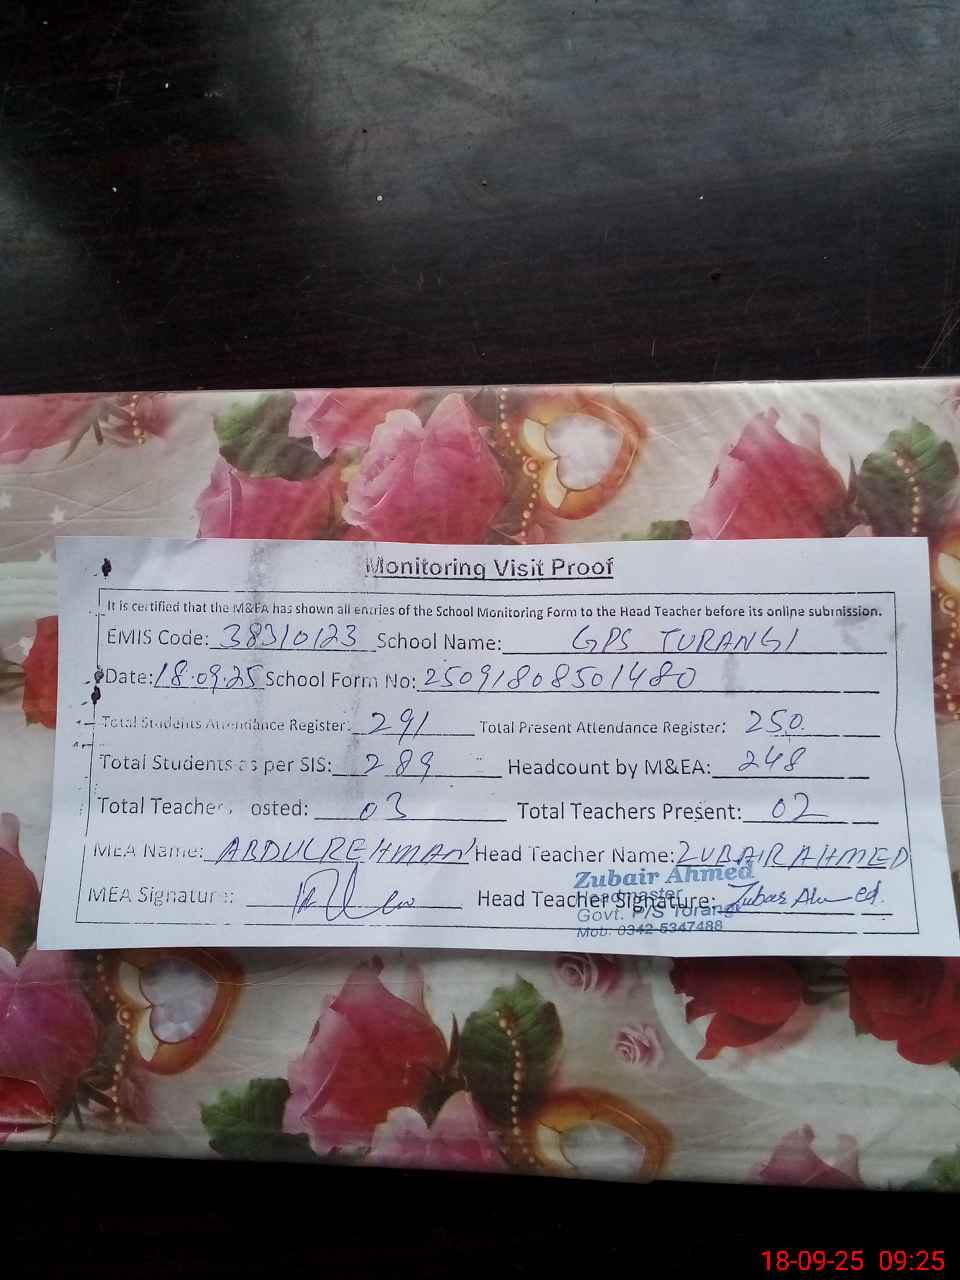 Monitoring Visit Proof
It is certified that the M&EA has shown all entries of the School Monitoring Form to the Head Teacher before its online submission.
EMIS Code: 38310123 School Name: GPS TURANGI
Date: 18.09.25 School Form No: 25091808501480
Total Students Attendance Register: 291 Total Present Attendance Register: 250
Total Students as per SIS: 289 Headcount by M&EA: 248
Total Teacher osted: 03 Total Teachers Present: 02
MEA Name: ABDULREHMAN Head Teacher Name: ZUBAIR AHMED
MEA Signature: Head Teacher Signature: Zubair Ahmed.
Zubair Ahmed
Headmaster
Govt. P/S Turangi
Mob: 0342-5347488
18-09-25 09:25